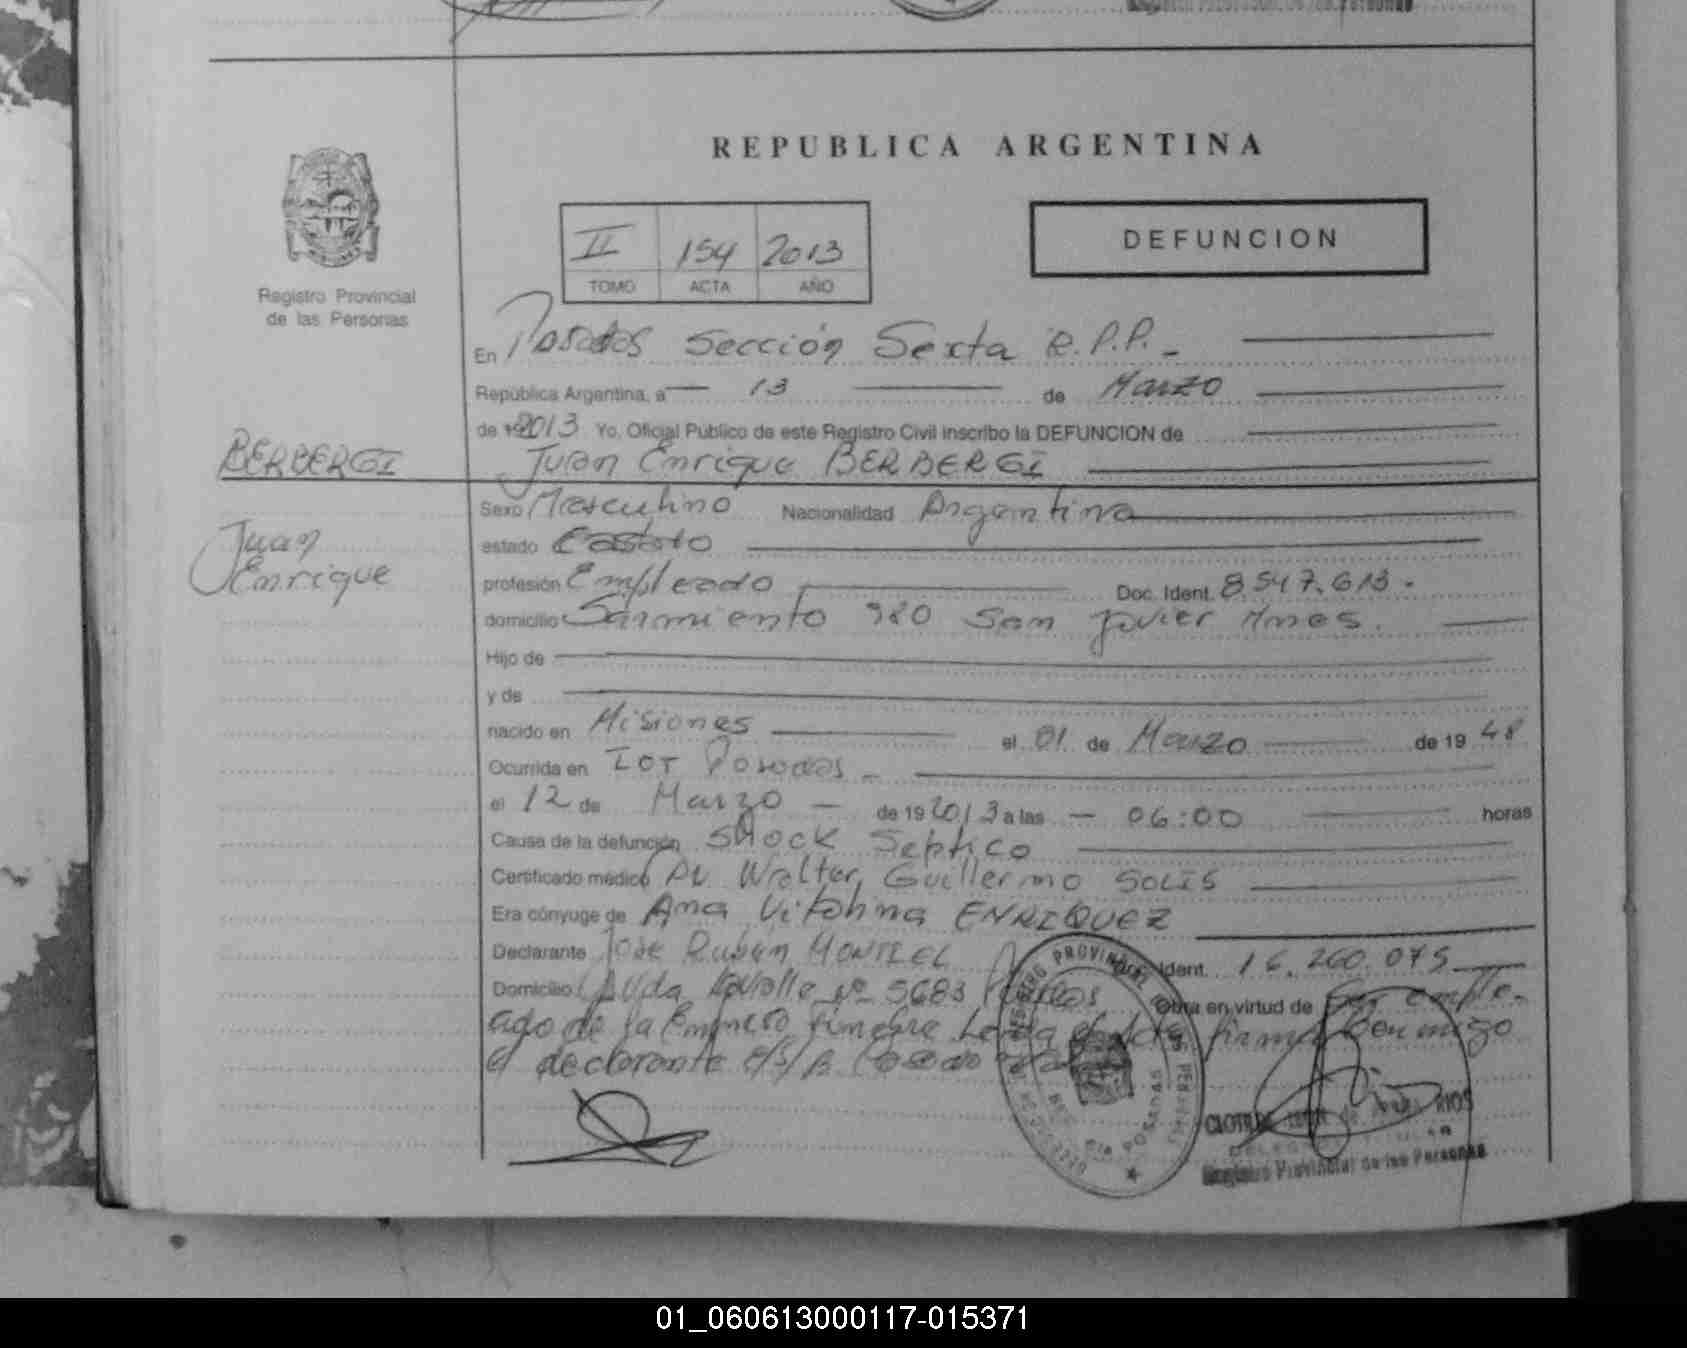 REPUBLICA ARGENTINA
II 154 2013
TOMO ACTA AÑO
DEFUNCION
Registro Provincial
de las Personas
En Posadas Sección Sexta R.P.P.-
República Argentina, a 13 de Marzo
de 19 2013 Yo, Oficial Público de este Registro Civil inscribo la DEFUNCION de
BERBERGI
Juan Enrique BERBERGI
Juan
Enrique
Sexo Masculino Nacionalidad Argentina
estado Casado
profesión Empleado Doc. Ident. 8.547.613.
domicilio Sarmiento 980 San Javier Mnes.
Hijo de
y de
nacido en Misiones el 01 de Marzo de 19 48
Ocurrida en IOT Posadas -
el 12 de Marzo - de 19 2013 a las - 06:00 horas
Causa de la defunción Shock Septico
Certificado médico Walter Guillermo SOLIS
Era cónyuge de Ana ENRIQUEZ
Declarante José Ruben MONTIEL Doc. Ident. 16.260.075
Domicilio Avda Lavalle Nº 5683 Posadas Obra en virtud de Ser emple-
ado de la Empresa fúnebre firma conmigo
el declarante
REGISTRO PROVINCIAL DE LAS PERSONAS
POSADAS
CLOTILDE de RIOS
Registro Provincial de las Personas
01_060613000117-015371